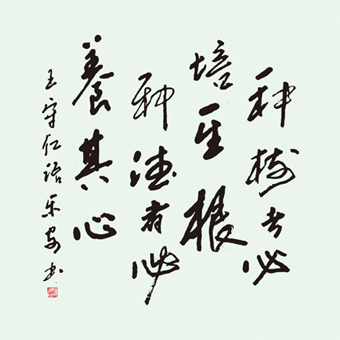 种树者必
培其根
种德者必
養其心
王守仁语 乐安书